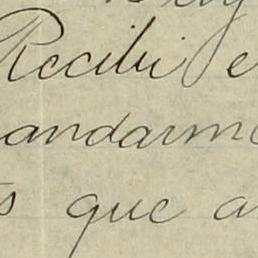 Recibi e
andarm
s que a